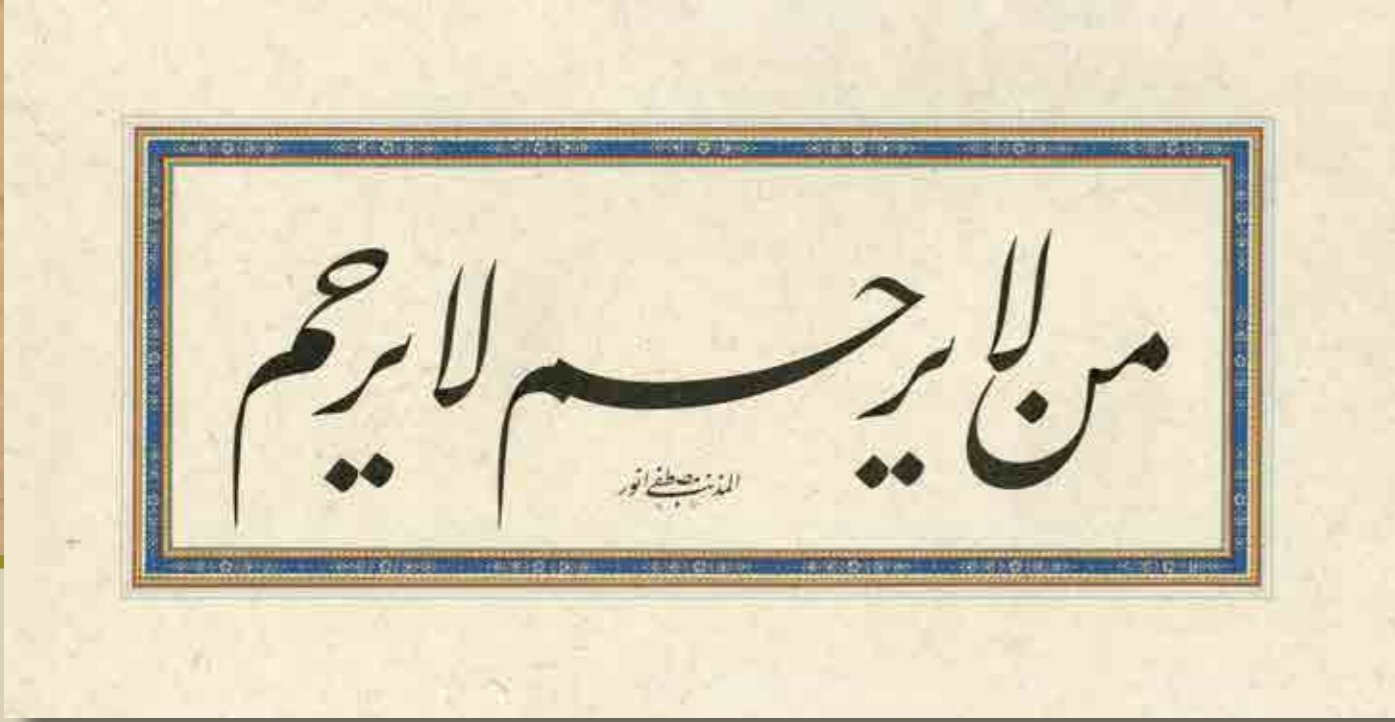 من لا يرحم لا يرحم
المذنب مصطفى انور